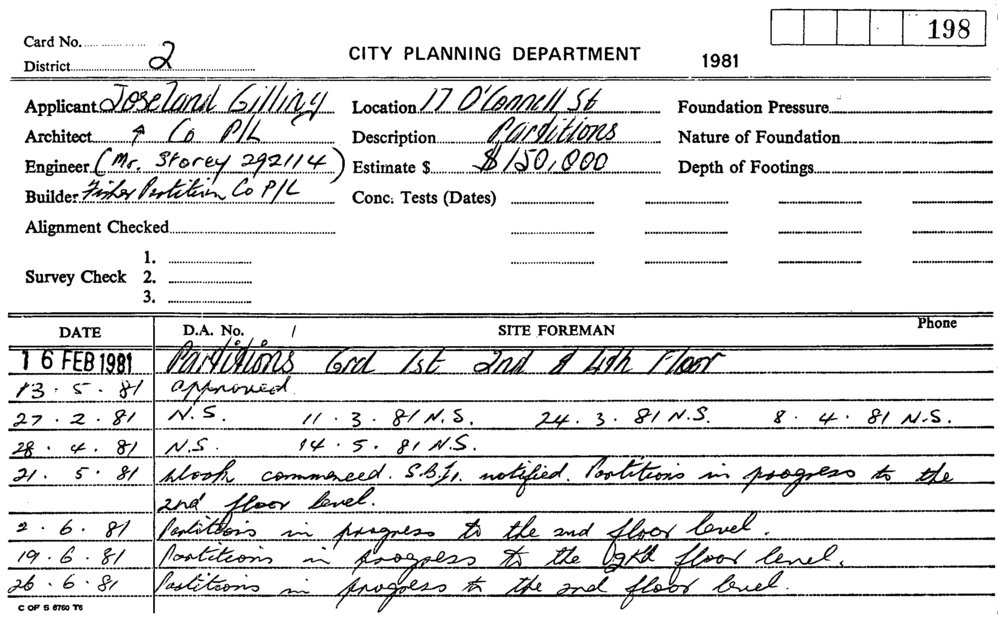 198
Card No.
District 2
CITY PLANNING DEPARTMENT 1981
Applicant Joseland Gilling Location 17 O'Connell St Foundation Pressure
Architect ↑ Co P/L Description Partitions Nature of Foundation
Engineer (Mr. Storey 292114) Estimate $ $150,000 Depth of Footings
Builder Fisher Partition Co P/L Conc. Tests (Dates)
Alignment Checked
1.
Survey Check 2.
3.
DATE D.A. No. / SITE FOREMAN Phone
16 FEB 1981 Partitions Grd 1st 2nd & 4th Floor
13 . 5 . 81 approved.
27 . 2 . 81 N.S. 11 . 3 . 81 N.S. 24 . 3 . 81 N.S. 8 . 4 . 81 N.S.
28 . 4 . 81 N.S. 14 . 5 . 81 N.S.
21 . 5 . 81 Work commenced. S.B.I. notified. Partitions in progress to the
2nd floor level.
2 . 6 . 81 Partitions in progress to the 2nd floor level.
19 . 6 . 81 Partitions in progress to the floor level.
26 . 6 . 81 Partitions in progress to the 2nd floor level.
C OF S 6760 T6